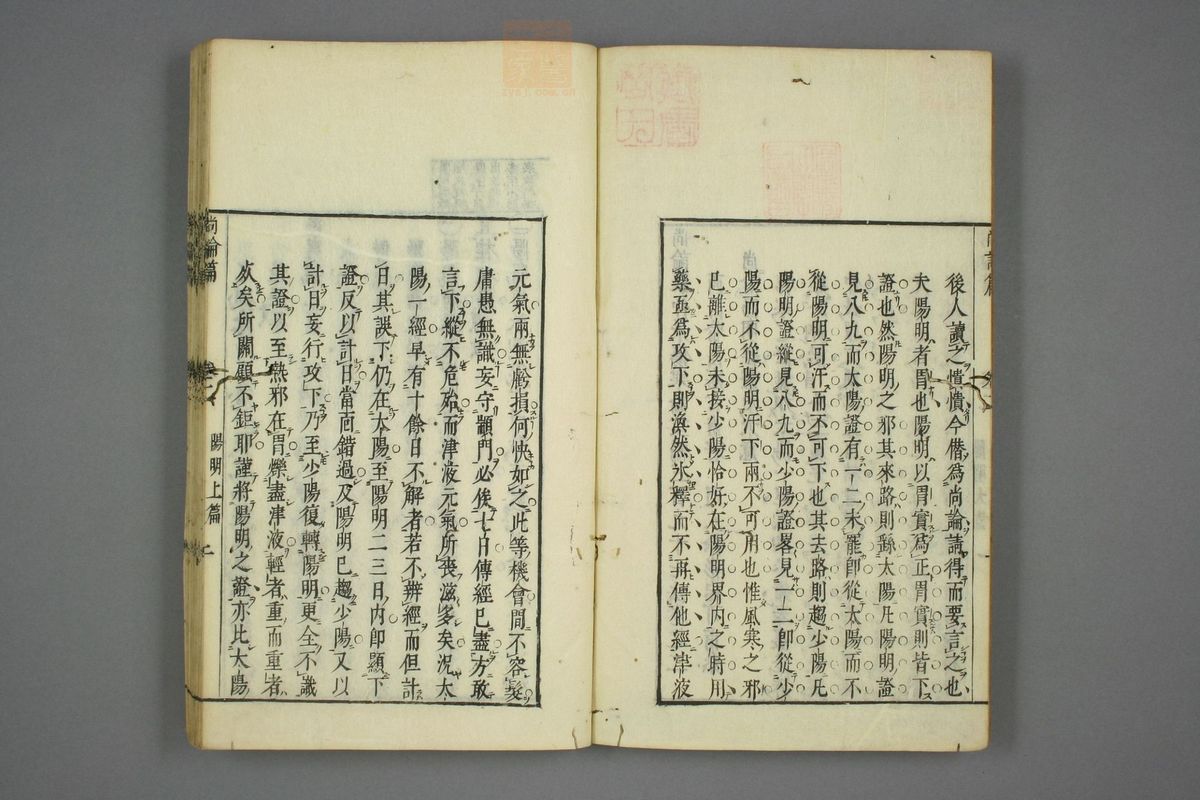 後人讀之憒憒今僭爲尚論請得而要言之也
夫陽明者胃也陽明以胃實爲正胃實則皆下
證也然陽明之邪其來路則繇太陽凡陽明證
見八九而太陽證有一二未罷卽從太陽而不
從陽明可汗而不可下也其去路則趨少陽凡
陽明證縱見八九而少陽證畧見一二卽從少
陽而不從陽明汗下兩不可用也惟風寒之邪
已離太陽未接少陽恰好在陽明界內之時用
藥亟爲攻下則渙然氷釋而不再傳他經津液
元氣兩無虧損何快如之此等機會間不容髮
庸愚無識妄守顓門必俟七日傳經已盡方敢
言下縱不危殆而津液元氣所喪滋多矣況太
陽一經早有十餘日不解者若不辨經而但計
日其誤下仍在太陽至陽明二三日內卽顯下
證反以計日當面錯過及陽明已趨少陽又以
計日妄行攻下乃至少陽復轉陽明更全不識
其證以至熱邪在胃爍盡津液輕者重而重者
死矣所關顧不鉅耶謹將陽明之證亦比太陽
尚論篇
卷二
陽明上篇
二